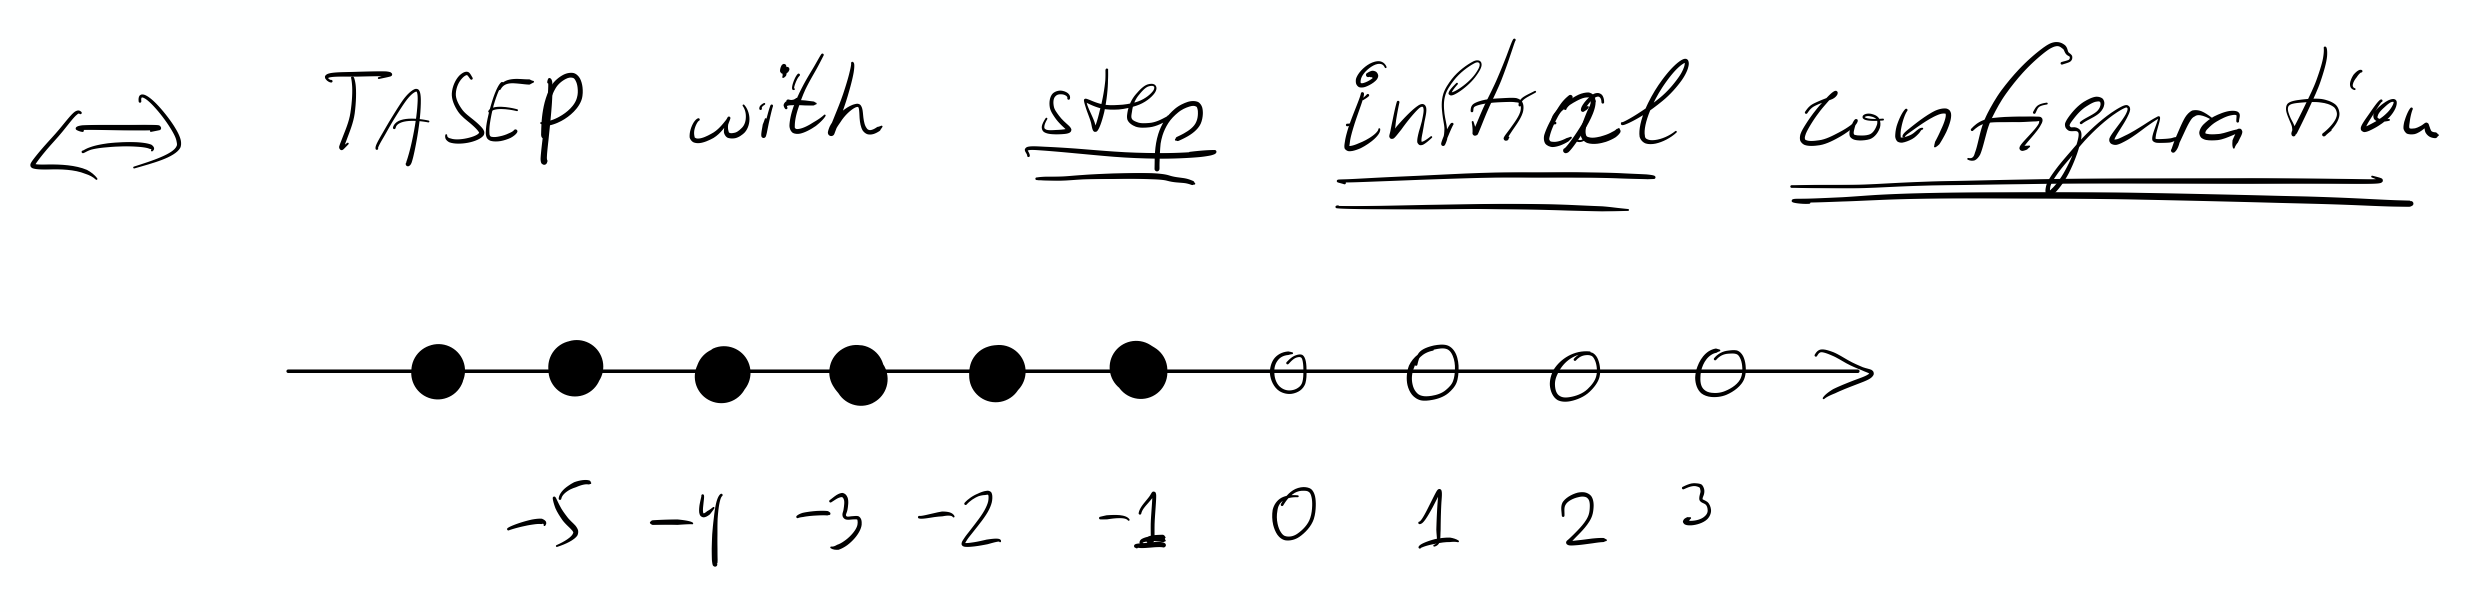 ⇔ TASEP with step initial configuration
-5 -4 -3 -2 -1 0 1 2 3